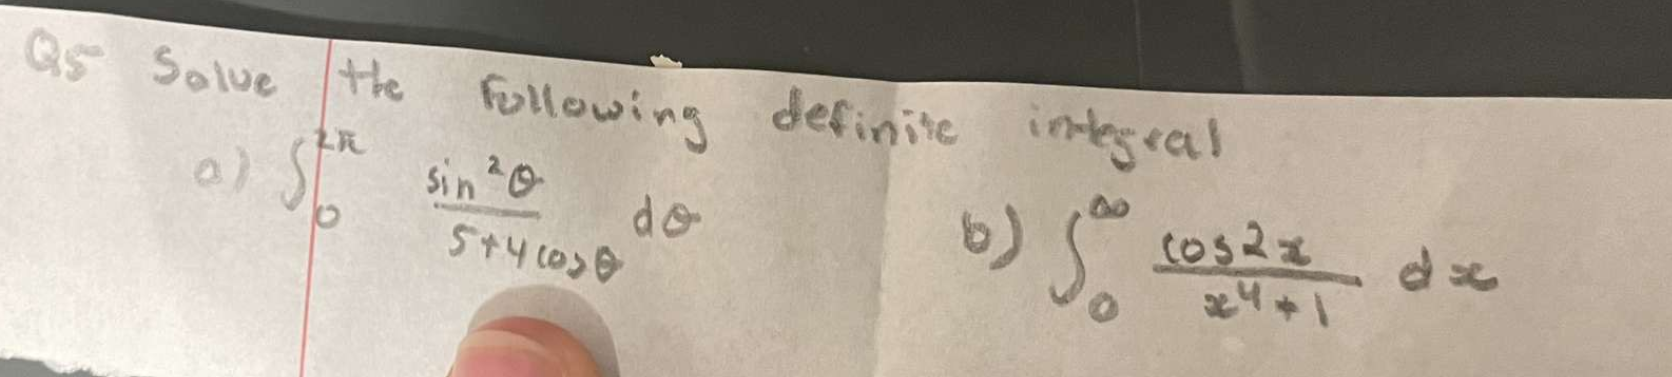 Q5 Solve the following definite integral
a) ∫₀^2π sin²θ / 5+4cosθ dθ b) ∫₀^∞ cos2x / x⁴+1 dx